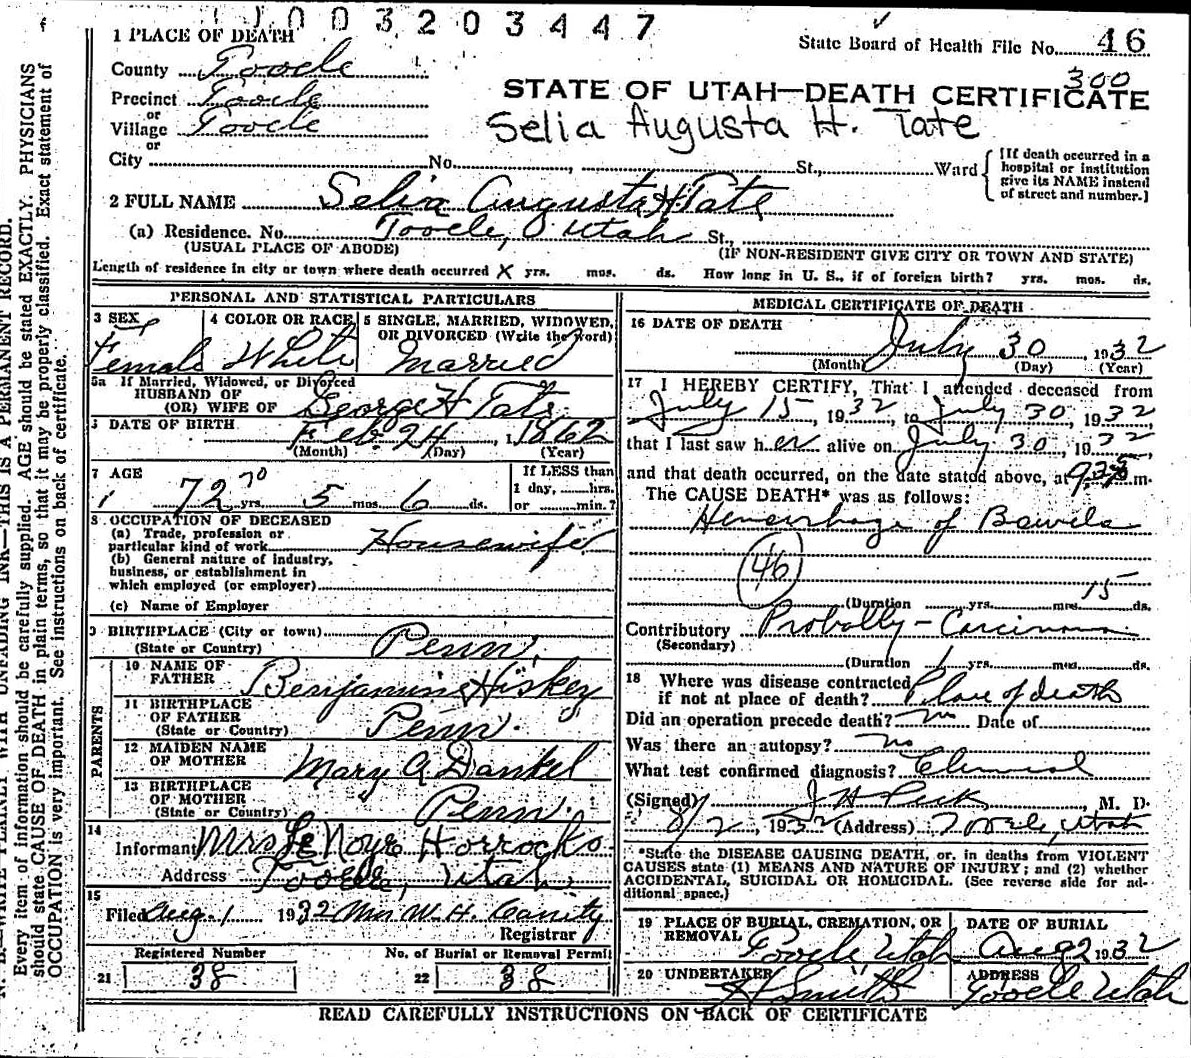 1003203447
State Board of Health File No. 46
300
1 PLACE OF DEATH
County Tooele
Precinct Tooele
or
Village Tooele
or
STATE OF UTAH—DEATH CERTIFICATE
Selia Augusta H. Tate
City No. , St., Ward
[If death occurred in a
hospital or institution
give its NAME instead
of street and number.]
2 FULL NAME Selia Augusta H Tate
(a) Residence. No. Tooele, Utah St.,
(USUAL PLACE OF ABODE) (IF NON-RESIDENT GIVE CITY OR TOWN AND STATE)
Length of residence in city or town where death occurred X yrs. mos. ds. How long in U. S., if of foreign birth? yrs. mos. ds.
PERSONAL AND STATISTICAL PARTICULARS
3 SEX
Female
4 COLOR OR RACE
White
5 SINGLE, MARRIED, WIDOWED,
OR DIVORCED (Write the word)
Married
5a If Married, Widowed, or Divorced
HUSBAND OF
(OR) WIFE OF George H Tate
DATE OF BIRTH Feb 24, 1862
(Month) (Day) (Year)
7 AGE
72 70 yrs. 5 mos. 6 ds.
If LESS than
1 day, hrs.
or min.?
8 OCCUPATION OF DECEASED
(a) Trade, profession or
particular kind of work Housewife
(b) General nature of industry,
business, or establishment in
which employed (or employer)
(c) Name of Employer
9 BIRTHPLACE (City or town)
(State or Country) Penn.
PARENTS
10 NAME OF
FATHER Benjamin Hiskey
11 BIRTHPLACE
OF FATHER
(State or Country) Penn.
12 MAIDEN NAME
OF MOTHER Mary A Dankel
13 BIRTHPLACE
OF MOTHER
(State or Country) Penn.
14
Informant Mrs Le Noye Horrocks
Address Tooele, Utah.
15
Filed Aug. 1 1932 Mrs W. H. Cassity
Registrar
Registered Number
21 38
No. of Burial or Removal Permit
22 38
MEDICAL CERTIFICATE OF DEATH
16 DATE OF DEATH
July 30, 1932
(Month) (Day) (Year)
17 I HEREBY CERTIFY, That I attended deceased from
July 15, 1932, to July 30, 1932,
that I last saw her alive on July 30, 1932,
and that death occurred, on the date stated above, at m.
The CAUSE DEATH* was as follows:
Hemorrhage of Bowels
46
(Duration yrs. mos. 15 ds.
Contributory Probally - Carcinoma
(Secondary)
(Duration 1 yrs. mos. ds.
18 Where was disease contracted
if not at place of death? Place of death
Did an operation precede death? no Date of
Was there an autopsy? no
What test confirmed diagnosis? Clinical
(Signed) J H Peck, M. D.
8/2, 1932 (Address) Tooele, Utah
*State the DISEASE CAUSING DEATH, or, in deaths from VIOLENT
CAUSES state (1) MEANS AND NATURE OF INJURY; and (2) whether
ACCIDENTAL, SUICIDAL OR HOMICIDAL. (See reverse side for ad-
ditional space.)
19 PLACE OF BURIAL, CREMATION, OR
REMOVAL
Tooele Utah
DATE OF BURIAL
Aug 2 1932
20 UNDERTAKER
Smith
ADDRESS
Tooele Utah
READ CAREFULLY INSTRUCTIONS ON BACK OF CERTIFICATE
N. B.—WRITE PLAINLY WITH UNFADING INK—THIS IS A PERMANENT RECORD.
Every item of information should be carefully supplied. AGE should be stated EXACTLY. PHYSICIANS
should state CAUSE OF DEATH in plain terms, so that it may be properly classified. Exact statement of
OCCUPATION is very important. See instructions on back of certificate.